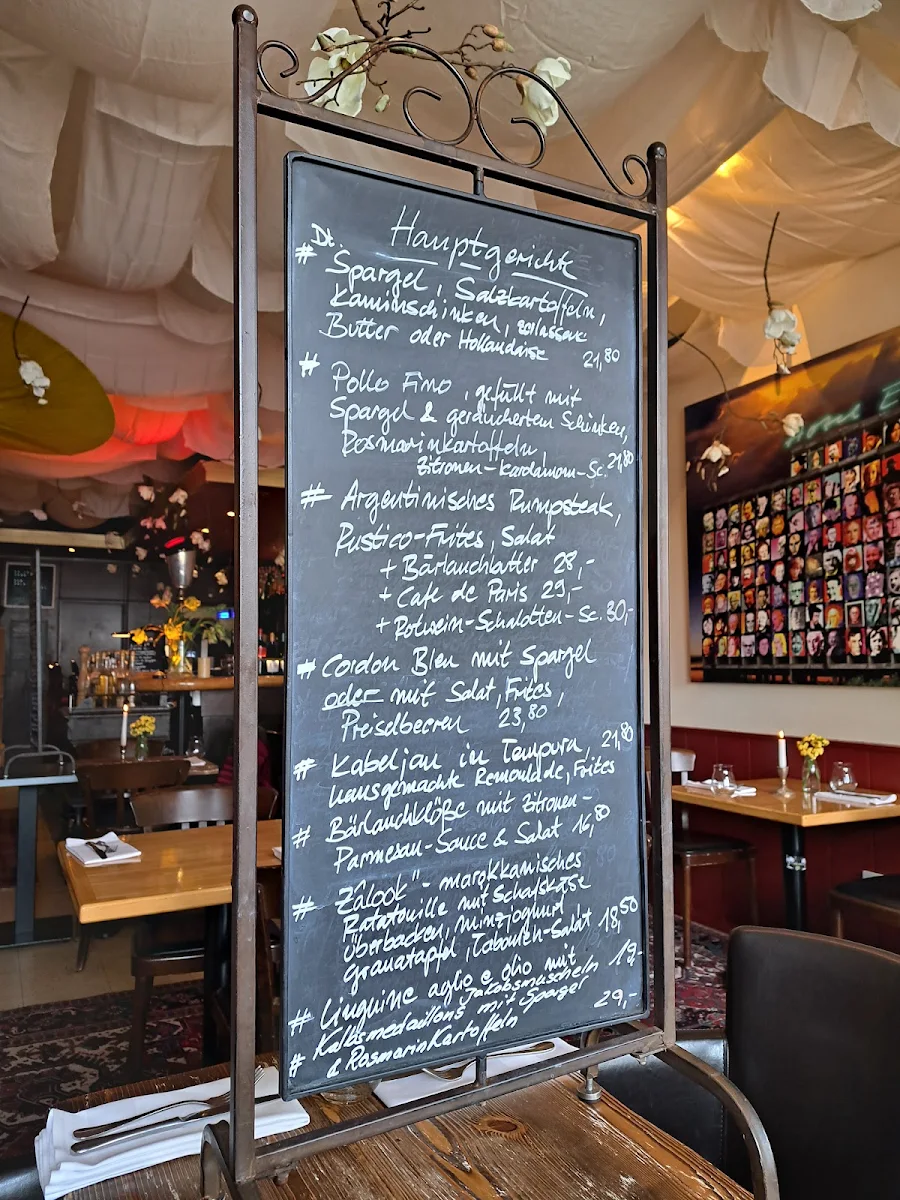 Hauptgerichte
# Dt. Spargel, Salzkartoffeln,
Kaminschinken, zerlassene
Butter oder Hollandaise 21,80
# Pollo Fino, gefüllt mit
Spargel & geräucherten Schinken,
Rosmarinkartoffeln,
Zitronen-Kardamom-Sc. 21,80
# Argentinisches Rumpsteak,
Rustico-Frites, Salat
+ Bärlauchbutter 28,-
+ Cafe de Paris 29,-
+ Rotwein-Schalotten-Sc. 30,-
# Cordon Bleu mit Spargel
oder mit Salat, Frites,
Preiselbeeren 23,80
# Kabeljau in Tempura 21,80
hausgemachte Remoulade, Frites
# Bärlauchklöße mit Zitronen-
Parmesan-Sauce & Salat 16,80
# Zâlook"- marokkanisches
Ratatouille mit Schafskäse
überbacken, Minzjoghurt,
Granatapfel, Taboulen-Salat 18,50
# Linguine aglio e olio mit
Jakobsmuscheln 19,-
# Kalbsmedaillons mit Spargel
& Rosmarinkartoffeln 29,-